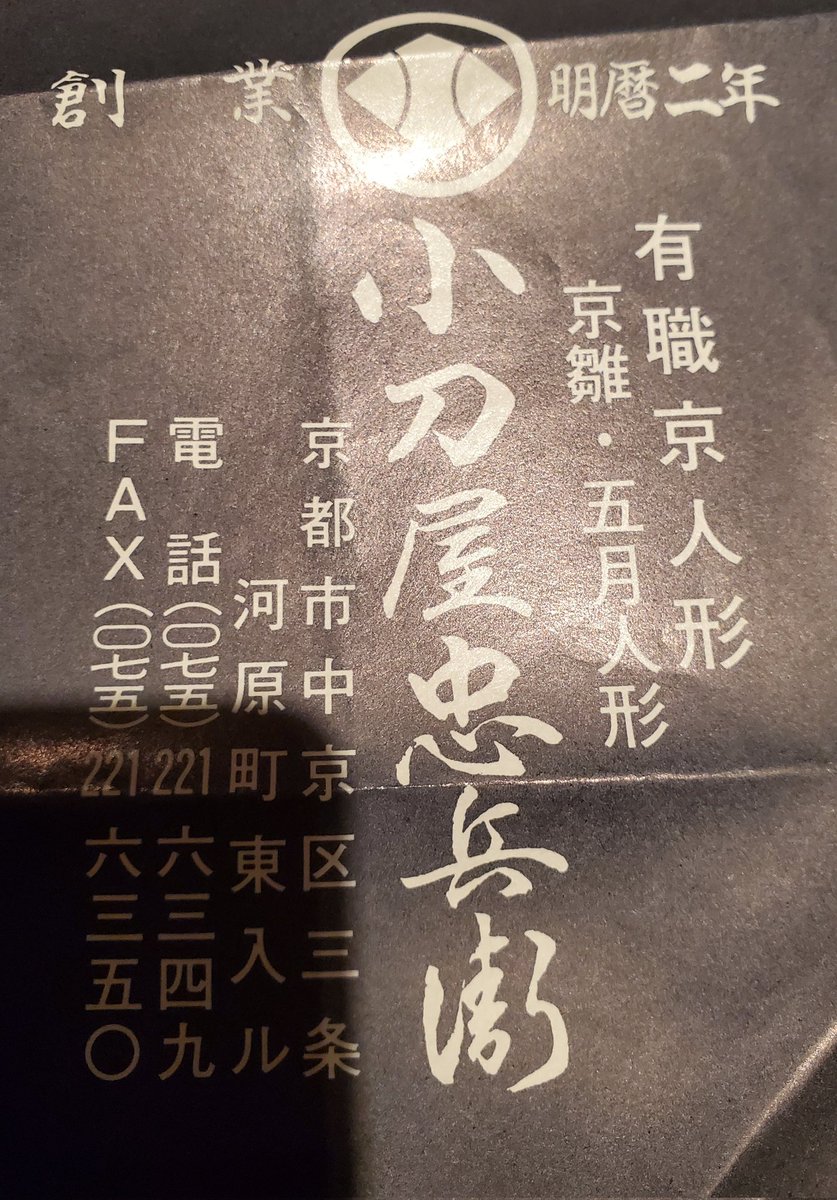 創業
明暦二年
有職京人形
京雛・五月人形
小刀屋忠兵衛
京都市中京区三条
河原町東入ル
電話(〇七五)221六三四九
FAX(〇七五)221六三五〇